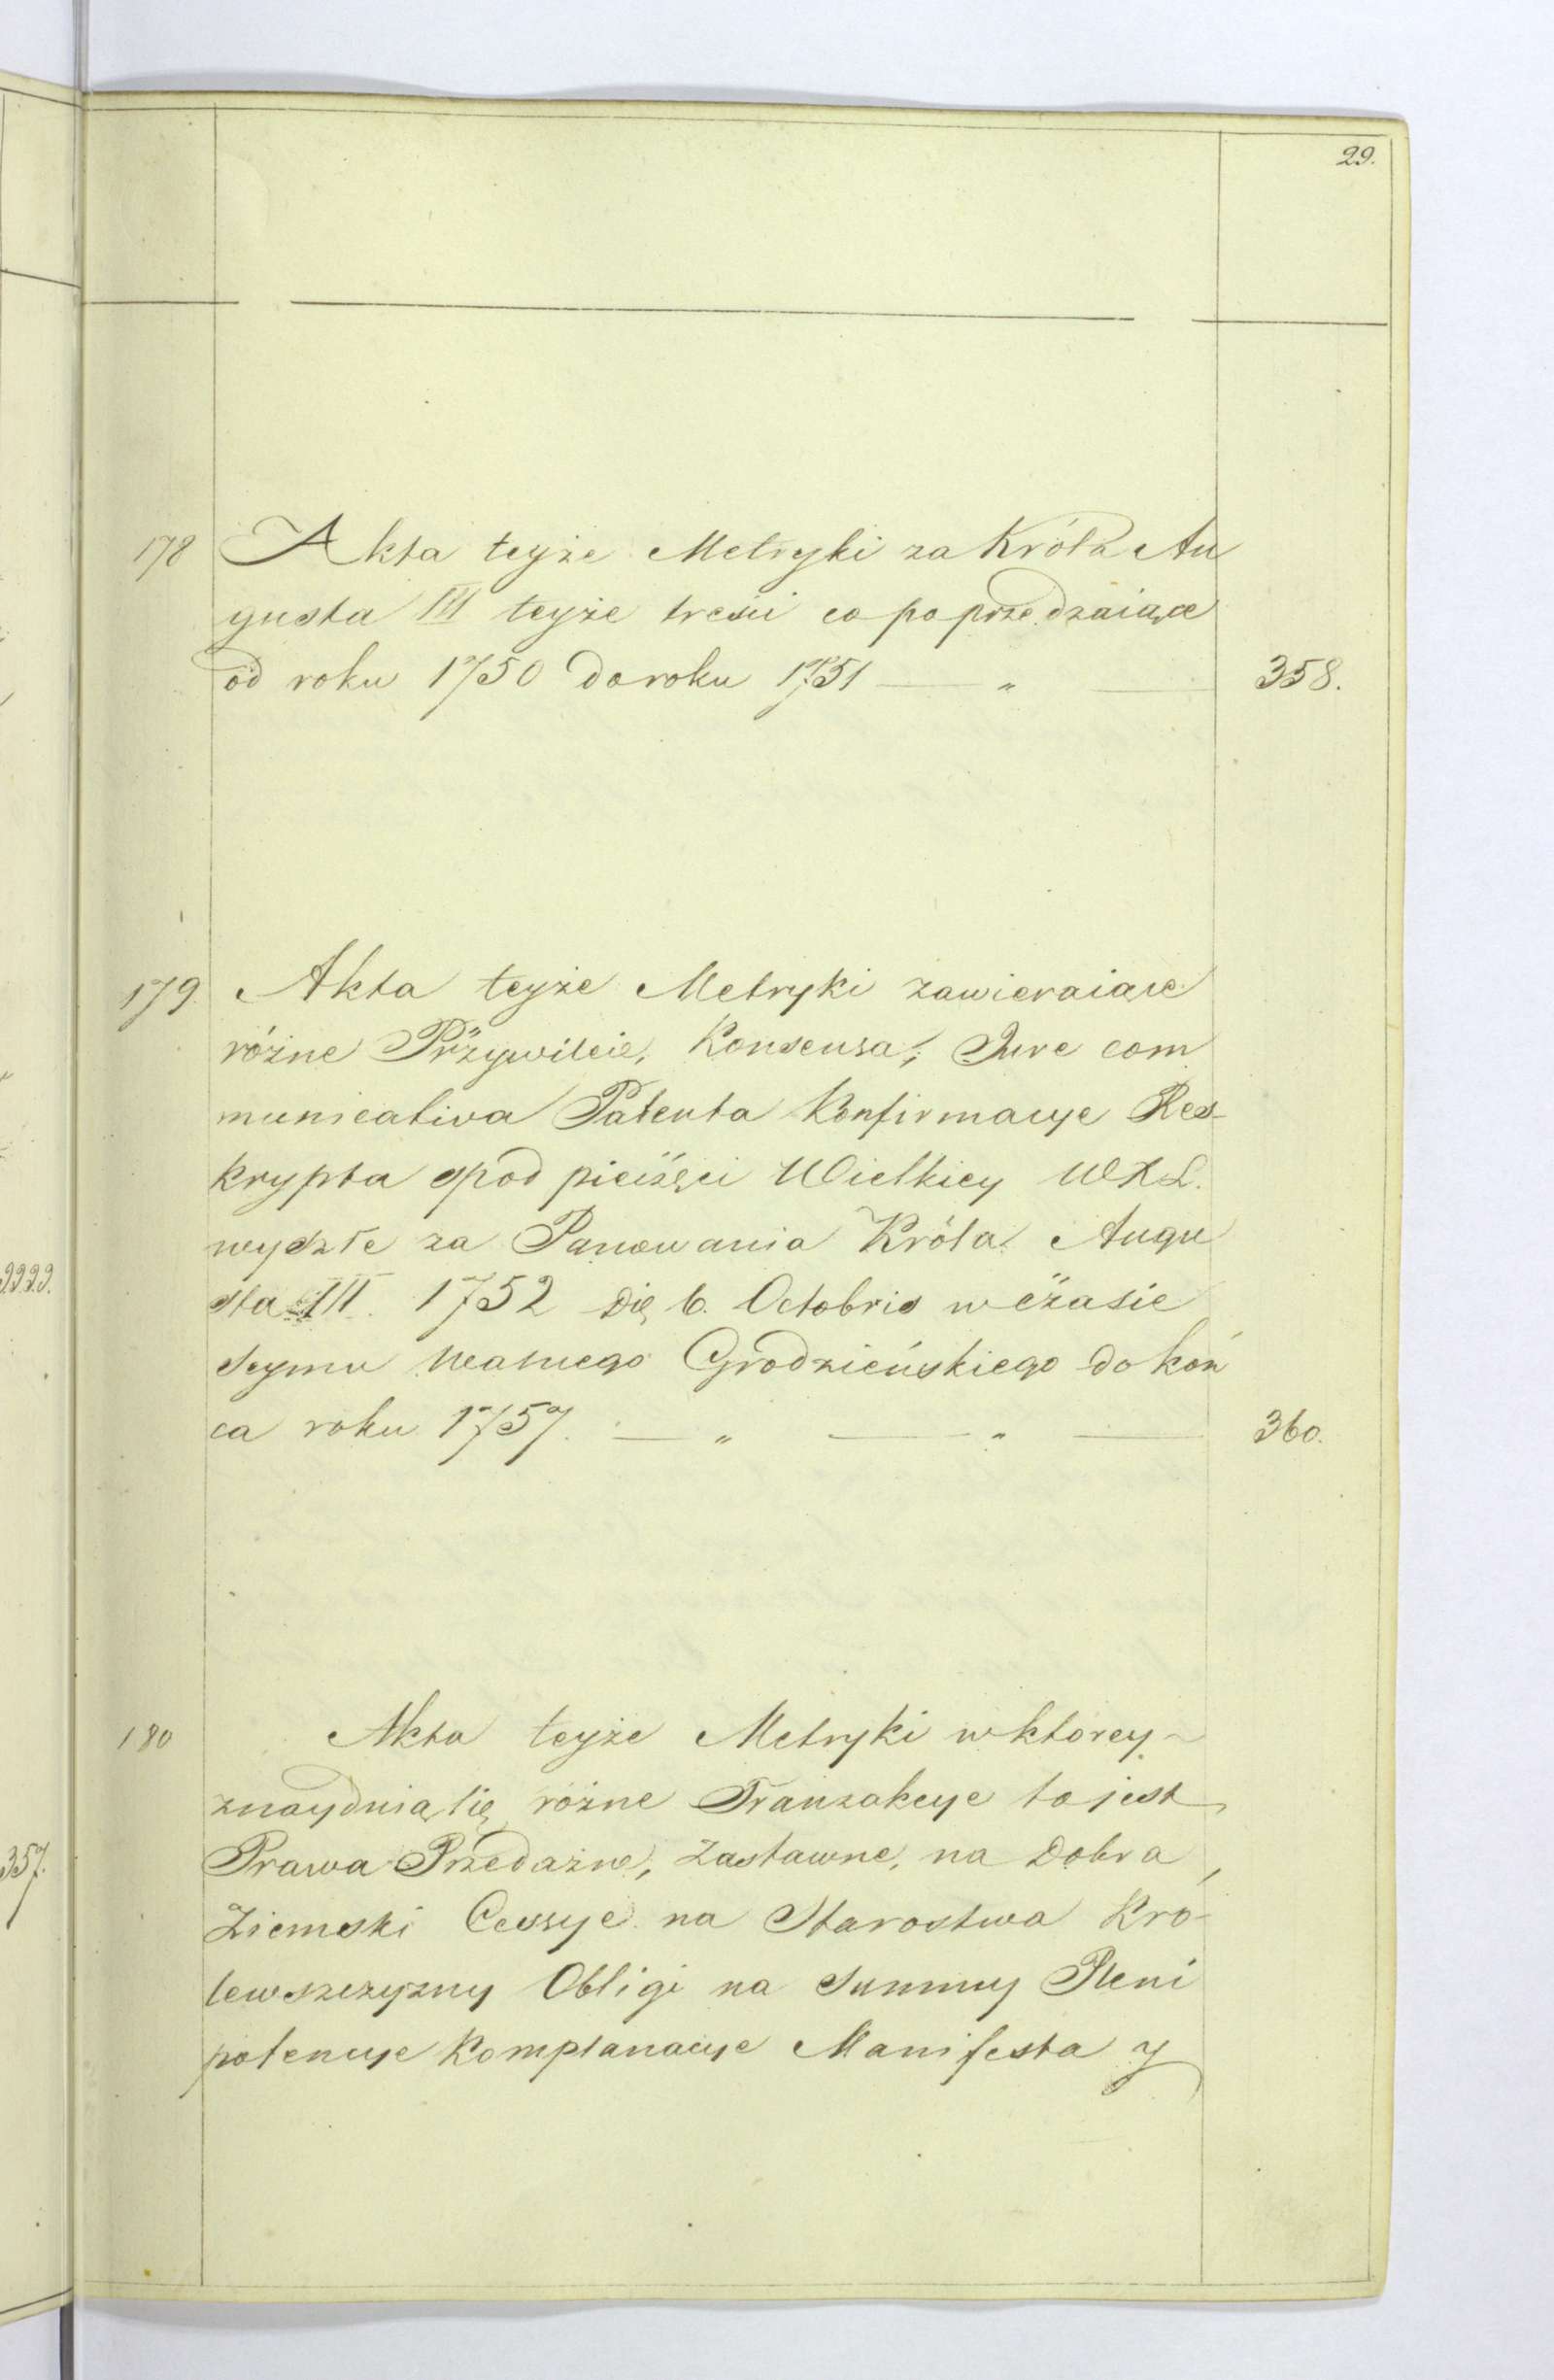 29.
178 Akta teyże Metryki za Króla Au
gusta III teyże treści co poprzedzaiące
od roku 1750 do roku 1751 — „ — 358.
179. Akta teyże Metryki zawieraiące
różne Przywileie, Konsensa, Jure com
municativa Patenta Konfirmacye Res-
krypta spod pieczęci Wielkiey WXL.
wyszłe za Panowania Króla Augu
sta III. 1752 Die 6. Octobris w czasie
Seymu Walnego Grodzieńskiego do koń
ca roku 1757. — „ — „ — 360.
180 Akta teyże Metryki w ktorey
znayduią się różne Tranzakcye to jest
Prawa Przedażne, Zastawne, na Dobra,
Ziemski Cessye na Starostwa Kró-
lewszczyzny Obligi na Summy Pleni
potencye Komplanacye Manifesta y
2229.
357.